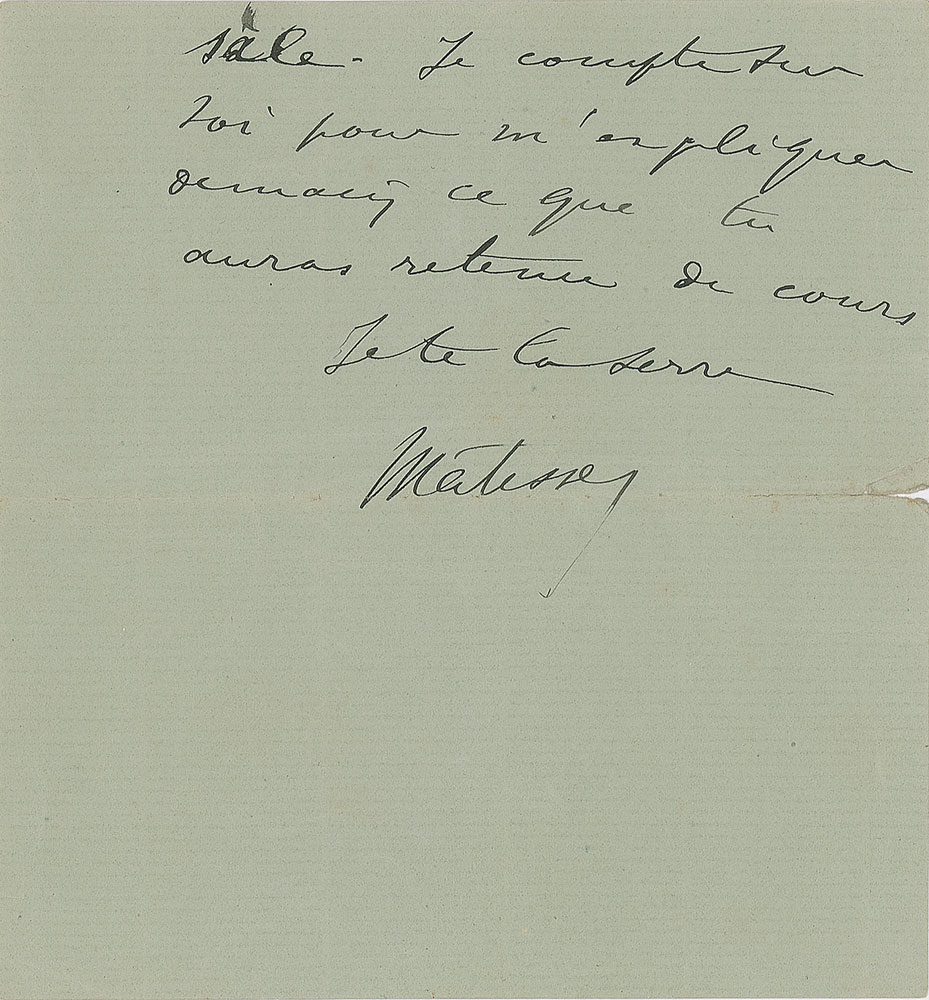 sâle. Je compte sur
toi pour m'expliquer
demain ce que tu
auras retenue de cours
Je te la serre
Matisse